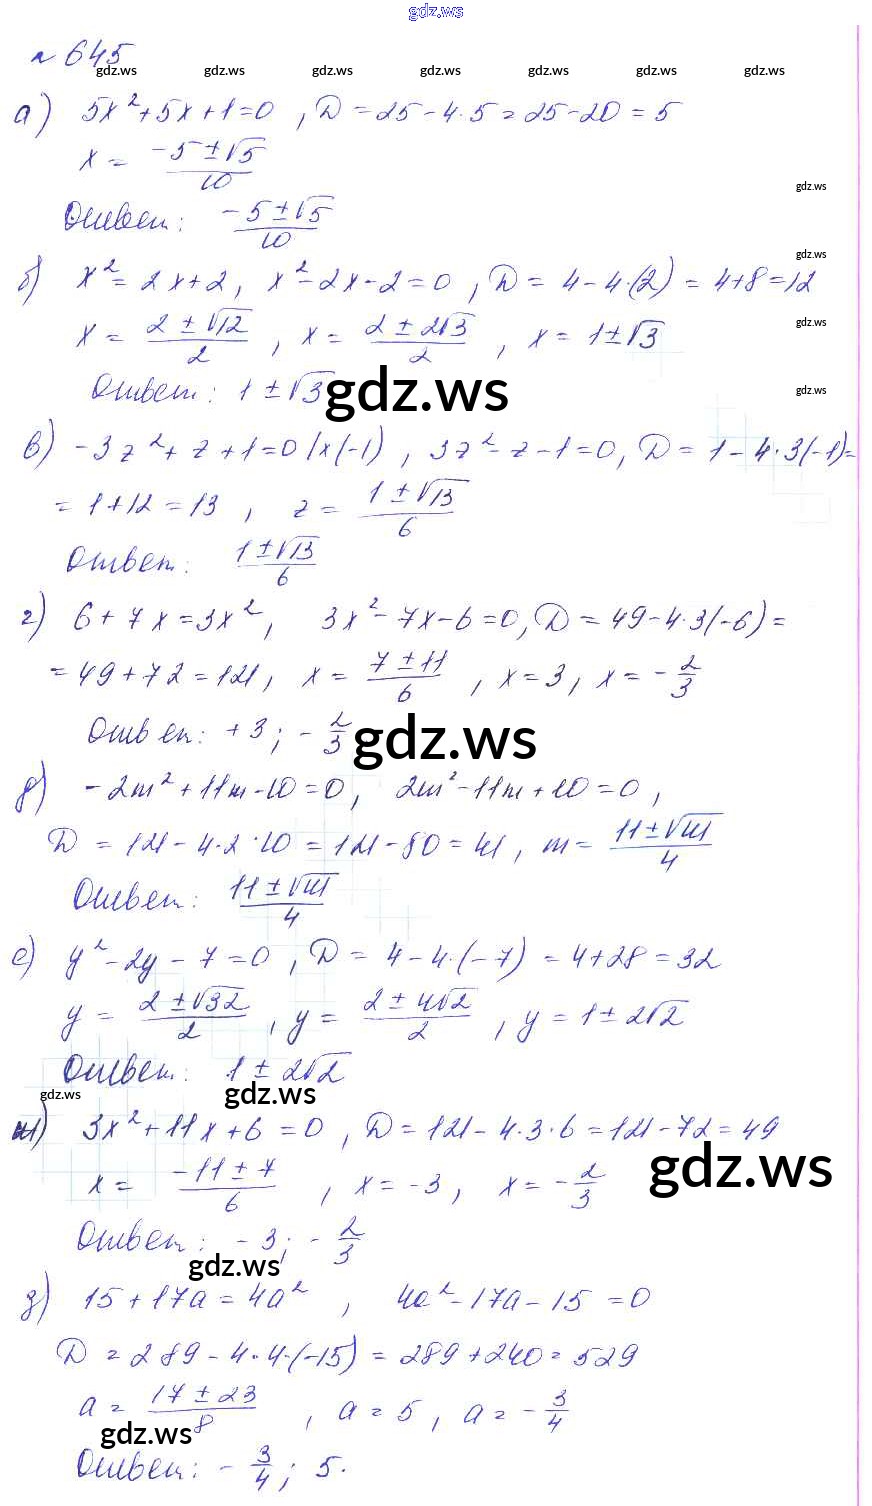 gdz.ws
№ 645
gdz.ws gdz.ws gdz.ws gdz.ws gdz.ws gdz.ws gdz.ws
а) 5x² + 5x + 1 = 0 , D = 25 - 4·5 = 25 - 20 = 5
x = (-5 ± √5)/10
gdz.ws
Ответ: (-5 ± √5)/10
gdz.ws
б) x² = 2x + 2, x² - 2x - 2 = 0 , D = 4 - 4·(2) = 4 + 8 = 12
x = (2 ± √12)/2 , x = (2 ± 2√3)/2 , x = 1 ± √3
gdz.ws
Ответ: 1 ± √3
gdz.ws gdz.ws
в) -3z² + z + 1 = 0 |x(-1) , 3z² - z - 1 = 0, D = 1 - 4·3(-1) =
= 1 + 12 = 13 , z = (1 ± √13)/6
Ответ: (1 ± √13)/6
г) 6 + 7x = 3x², 3x² - 7x - 6 = 0, D = 49 - 4·3(-6) =
= 49 + 72 = 121, x = (7 ± 11)/6 , x = 3, x = -2/3
Ответ: +3; -2/3
gdz.ws
д) -2m² + 11m - 10 = 0, 2m² - 11m + 10 = 0 ,
D = 121 - 4·2·10 = 121 - 80 = 41, m = (11 ± √41)/4
Ответ: (11 ± √41)/4
е) y² - 2y - 7 = 0 , D = 4 - 4·(-7) = 4 + 28 = 32
y = (2 ± √32)/2 , y = (2 ± 4√2)/2 , y = 1 ± 2√2
Ответ: 1 ± 2√2
gdz.ws gdz.ws
ж) 3x² + 11x + 6 = 0 , D = 121 - 4·3·6 = 121 - 72 = 49
gdz.ws
x = (-11 ± 7)/6 , x = -3, x = -2/3
Ответ: -3; -2/3
gdz.ws
з) 15 + 17a = 4a² , 4a² - 17a - 15 = 0
D = 289 - 4·4·(-15) = 289 + 240 = 529
a = (17 ± 23)/8 , a = 5, a = -3/4
gdz.ws
Ответ: -3/4; 5.